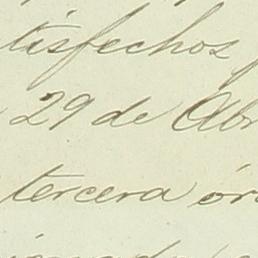 tisfechos
29 de Abr
tercera ór